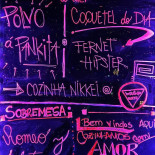 POLVO
COQUETEL do DIA
á PANKITA
FERNET HIPSTER
COZINHA NIKKEI @
SOBREMESA:
Bem vindos AQUI
Romeo y
AMOR